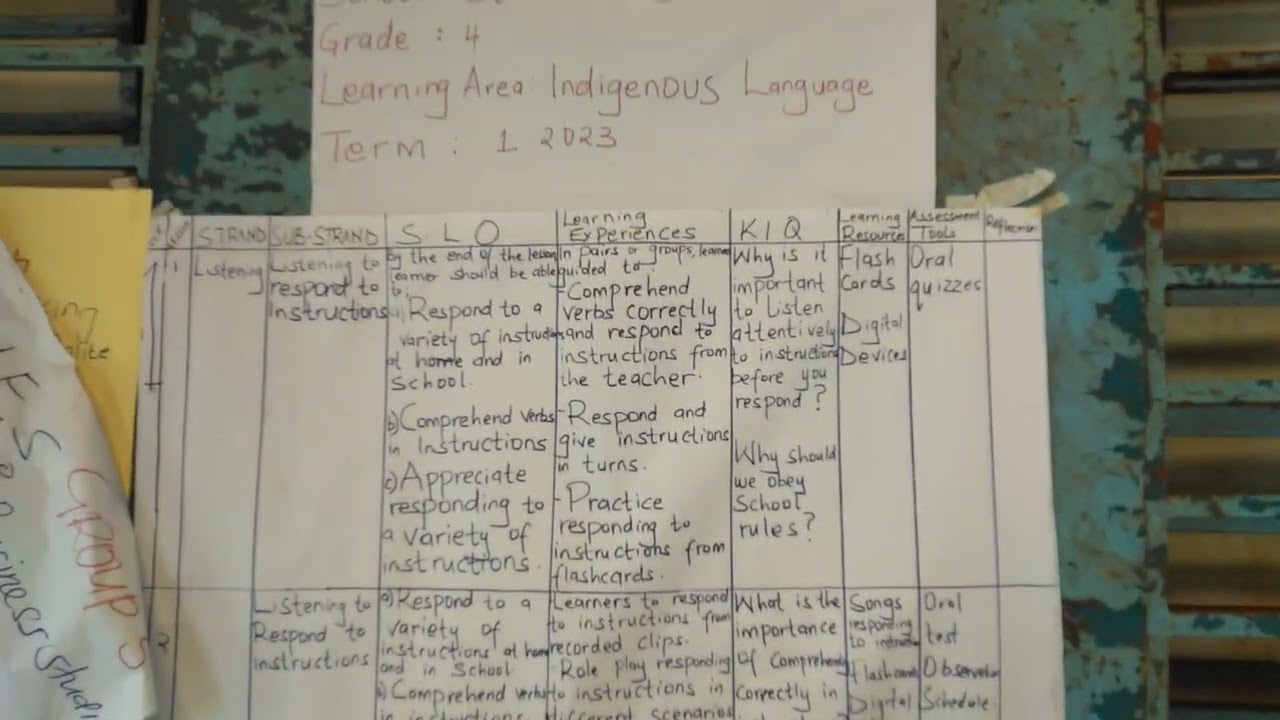 Grade : 4
Learning Area: Indigenous Language
Term : 1 2023
STRAND
SUB-STRAND
S L O
Learning
Experiences
K I Q
Learning
Resource
Assessment
Tools
Reflection
1
Listening
Listening to
respond to
Instructions
by the end of the lesson
learner should be able
to:
Respond to a
variety of instructions
at home and in
School.
b) Comprehend verbs
in Instructions
c) Appreciate
responding to
a variety of
instructions.
In pairs or groups, learner
guided to:
- Comprehend
verbs correctly
and respond to
instructions from
the teacher.
- Respond and
give instructions
in turns.
- Practice
responding to
instructions from
flashcards.
Why is it
important
to Listen
attentively
to instructions
before you
respond?
Why should
we obey
School
rules?
Flash
Cards
Digital
Devices
Oral
quizzes
2
Listening to
Respond to
instructions
a) Respond to a
variety of
instructions at home
and in School.
b) Comprehend verbs
in instructions
Learners to respond
to instructions from
recorded clips.
Role play responding
to instructions in
different scenarios
What is the
importance
of Comprehend
correctly in
Songs
responding
to
Flashcards
Digital
Oral
test
Observation
Schedule.
GROUP 5